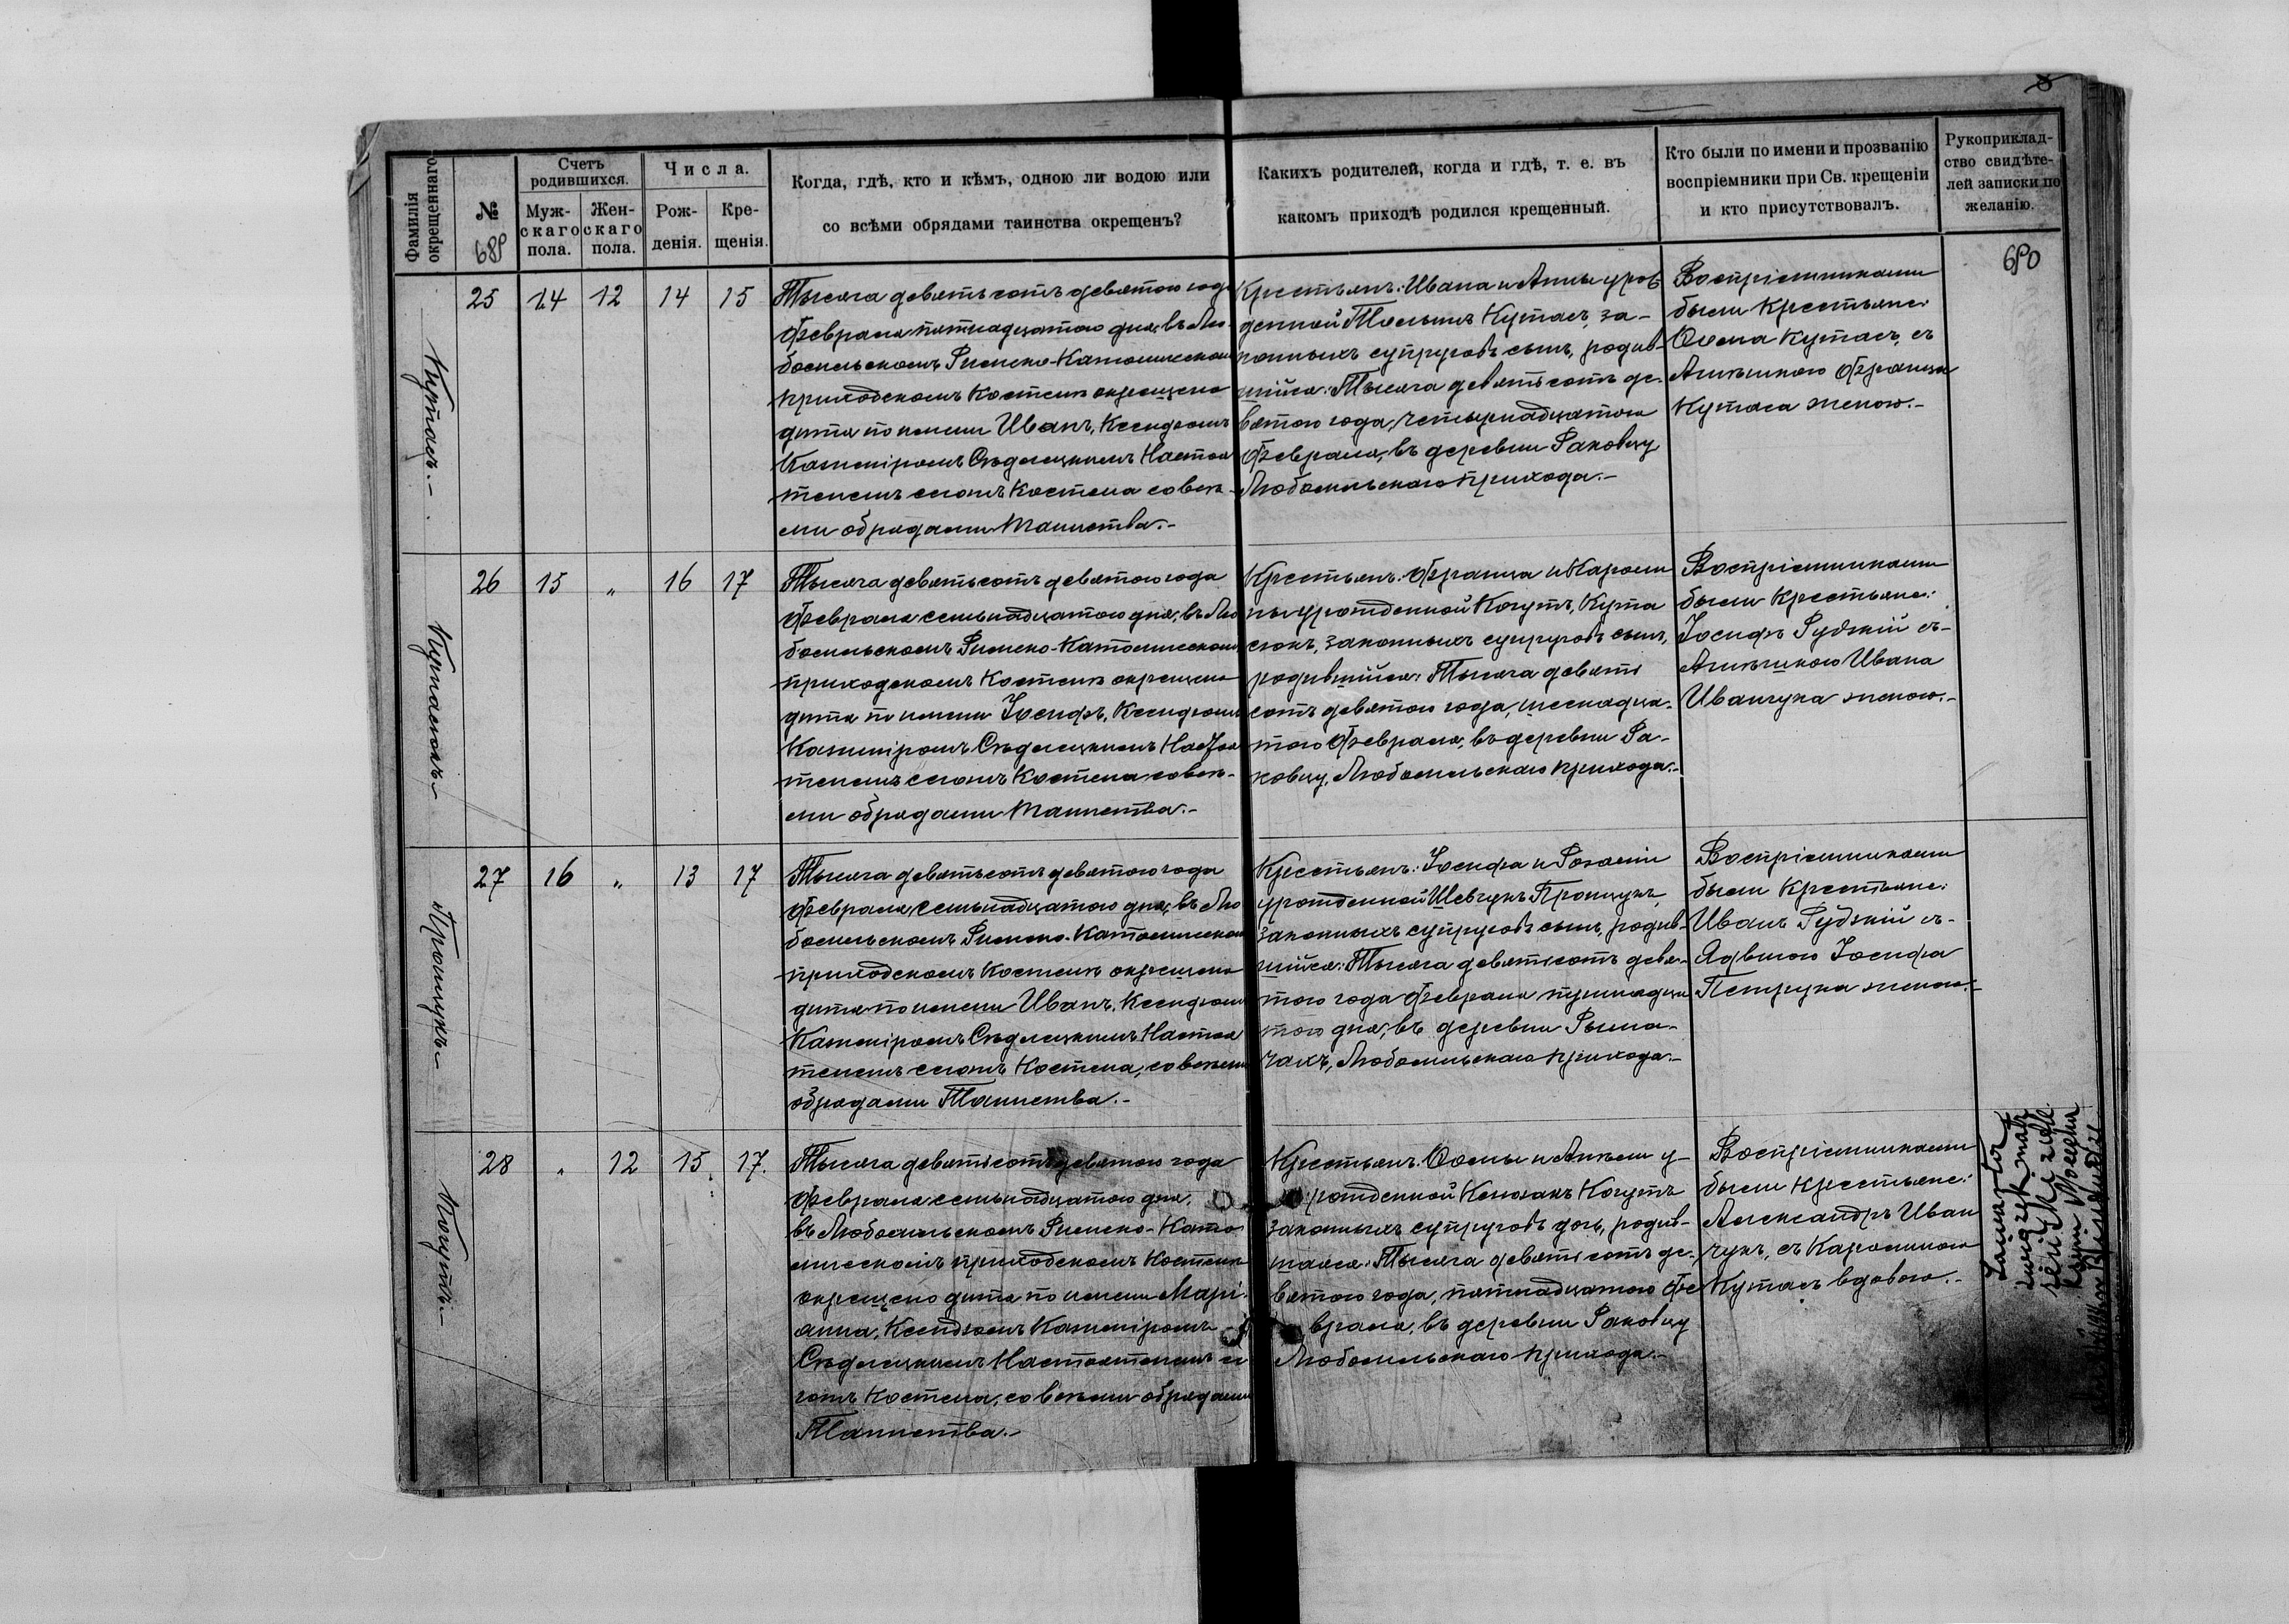 8
Фамилія
окрещеннаго
№
689
Счетъ
родившихся.
Муж-
скаго
пола.
Жен-
скаго
пола.
Числа.
Рож-
денія.
Кре-
щенія.
Когда, гдѣ, кто и кѣмъ, одною ли водою или
со всѣми обрядами таинства окрещенъ?
Какихъ родителей, когда и гдѣ, т. е. въ
какомъ приходѣ родился крещенный.
Кто были по имени и прозванію
воспріемники при Св. крещеніи
и кто присутствовалъ.
Рукоприклад-
ство свидѣте-
лей записки по
желанію.
690
Кутасъ.-
25 14 12 14 15
Тысяча девятьсотъ девятого года
Февраля пятнадцатого дня, въ Лю-
бомльскомъ Римско-Католическомъ
приходскомъ Костелѣ окрещено
дитя по имени Иванъ, Ксендзомъ
Казиміромъ Сѣдлецкимъ Настоя
телемъ сегожъ Костела со всѣ-
ми обрядами Таинства.-
Крестьянъ: Ивана и Анны урож
денной Кутасъ, за-
конныхъ супруговъ сынъ, родив-
шійся: Тысяча девятьсотъ де-
вятого года, четырнадцатого
Февраля, въ деревни Раковцу
Любомльскаго прихода.-
Воспріемниками
были Крестьяне:
Ѳома Кутасъ, съ
Франца
Кутаса женою.-
Кутасюкъ
26 15 " 16 17
Тысяча девятьсотъ девятого года
Февраля семьнадцатого дня, въ Лю
бомльскомъ Римско-Католическомъ
приходскомъ Костелѣ окрещено
дитя по имени Іосифъ, Ксендзомъ
Казиміромъ Сѣдлецкимъ Настоя
телемъ сегожъ Костела со всѣ-
ми обрядами Таинства.-
Крестьянъ: Франца и Кароли
ны урожденной Когутъ, Кута
сюкъ, законныхъ супруговъ сынъ,
родившійся: Тысяча девять
сотъ девятого года, шеснадца-
того Февраля, въ деревни Ра-
ковцу, Любомльскаго прихода.-
Воспріемниками
были Крестьяне:
Іосифъ Рудзкій съ-
Ивана
Иванчука женою.-
Пронцукъ
27 16 " 13 17
Тысяча девятьсотъ девятого года
Февраля семьнадцатого дня, въ Лю
бомльскомъ Римско-Католическомъ
приходскомъ Костелѣ окрещено
дитя по имени Иванъ, Ксендзомъ
Казиміромъ Сѣдлецкимъ Настоя
телемъ сегожъ Костела, со всѣми
обрядами Таинства.-
Крестьянъ: Іосифа и Розаліи
урожденной Шевчукъ Пронцукъ,
законныхъ супруговъ сынъ, родив-
шійся: Тысяча девятьсотъ девя-
того года Февраля тринадца
того дня, въ деревни Рыма-
чахъ, Любомльскаго прихода.-
Воспріемниками
были Крестьяне:
Иванъ Рудзкій съ-
Ядвигою Іосифа
Петрука женою.-
Когутъ.-
28 " 12 15 17.
Тысяча девятьсотъ девятого года
Февраля семьнадцатого дня,
въ Любомльскомъ Римско-Като
лическомъ приходскомъ Костелѣ
окрещено дитя по имени Марі-
анна, Ксендзомъ Казиміромъ
Сѣдлецкимъ Настоятелемъ се
гожъ Костела, со всѣми обрядами
Таинства.-
Крестьянъ: Ѳомы и Анѣли у-
рожденной Когутъ
законныхъ супруговъ дочь, родив-
шаяся: Тысяча девятьсотъ де-
вятого года, пятнадцатого Фе
враля, въ деревни Раковцу
Любомльскаго прихода.-
Воспріемниками
были Крестьяне:
Александръ Иван
чукъ, съ Каролиною
Кутасъ вдовою.-
Zawarta